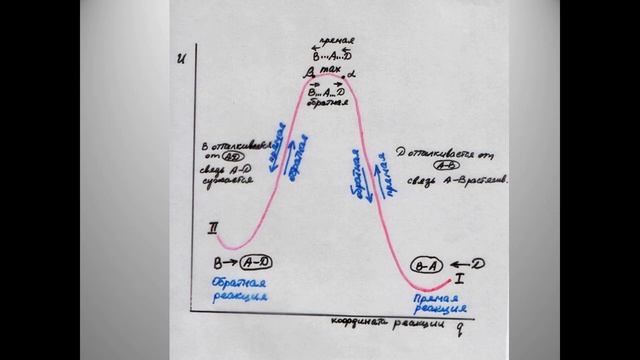 прямая
B...A...D
U
β max α
B...A...D
обратная
B отталкивается
от A-D
связь A-D
сужается
прямая
обратная
обратная
прямая
D отталкивается от
A-B
связь A-B растягив.
II
B → A-D
Обратная
реакция
B-A ← D
I
Прямая
реакция
координата реакции q